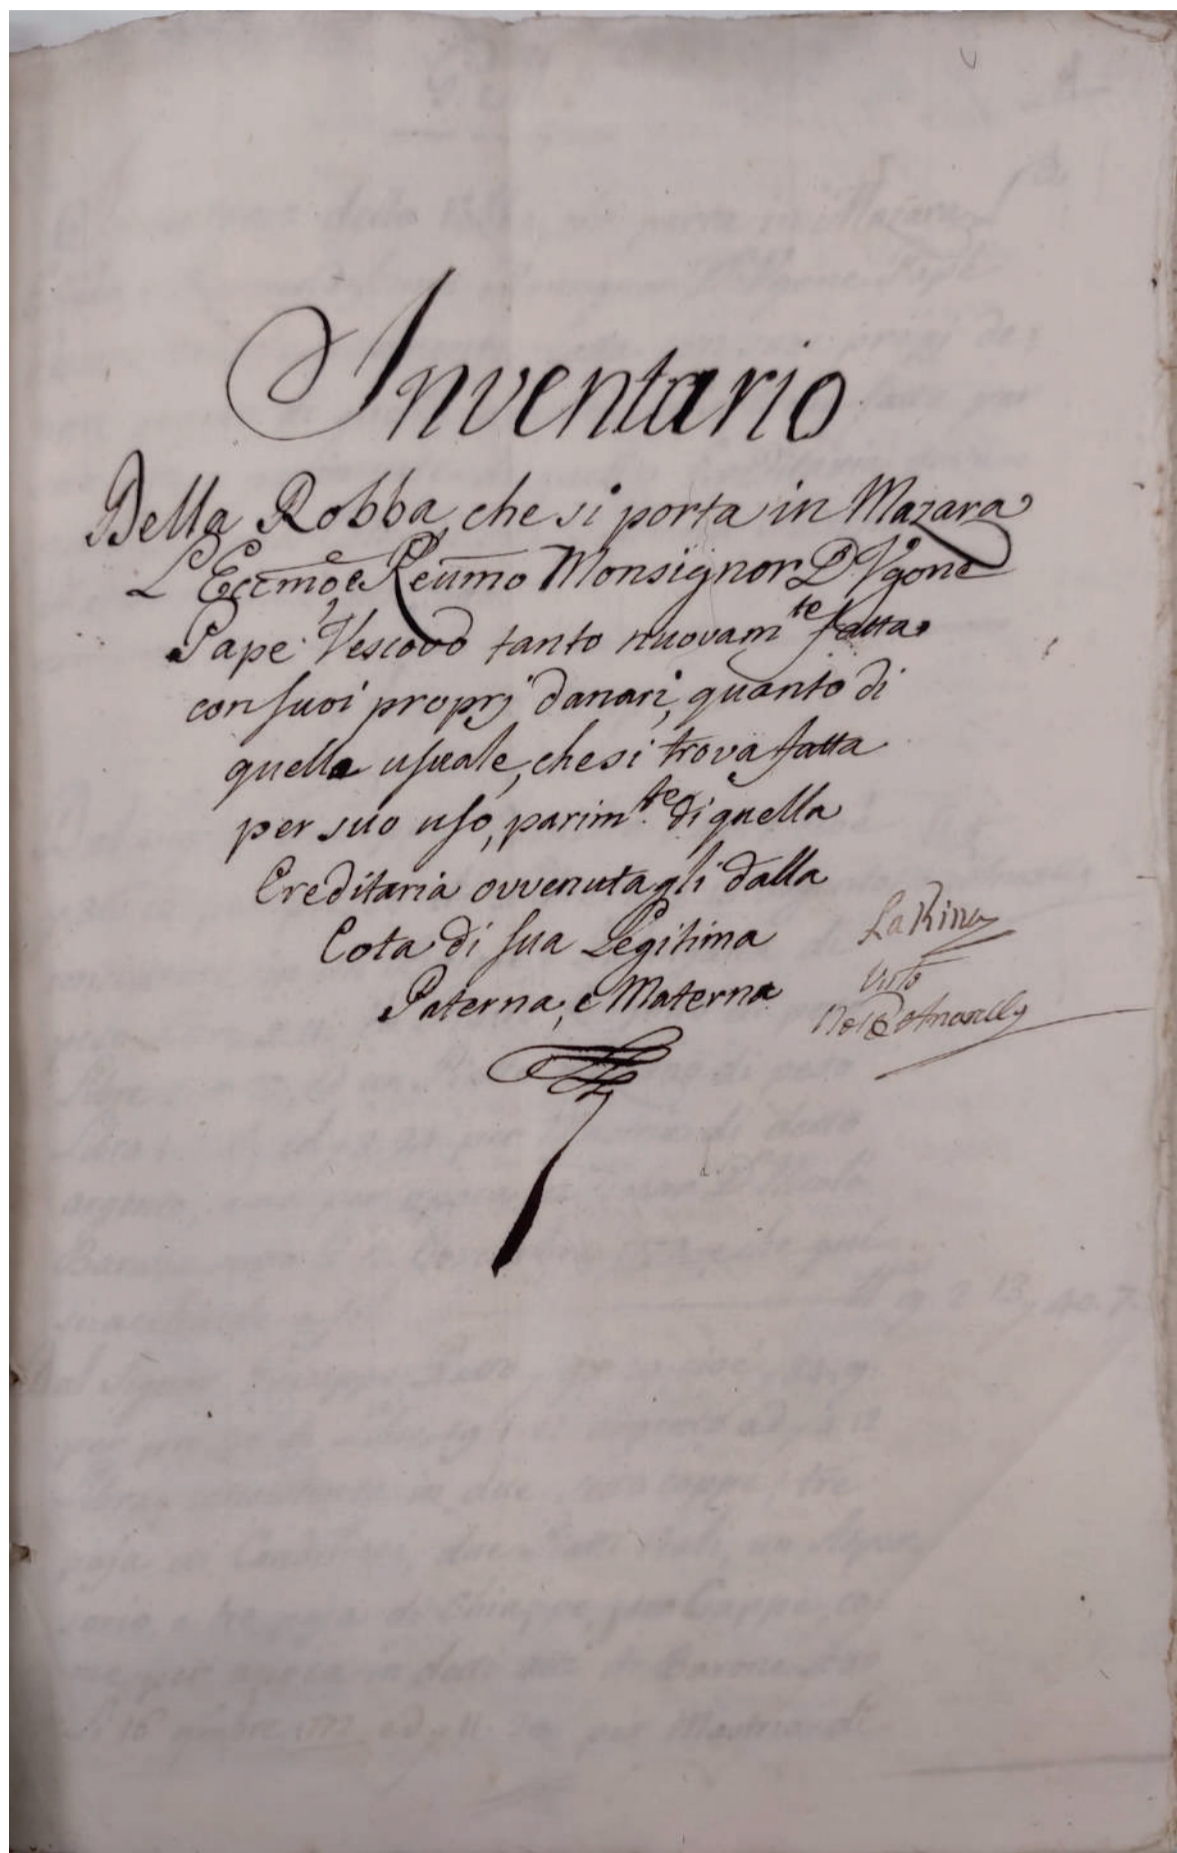 Inventario
Della Robba, che si porta in Mazara
L'Eccmo, e Reumo Monsignor D. Ugone
Pape Vescovo tanto nuovamte fatta
con suoi proprj danari, quanto di
quella usuale, che si trova fatta
per suo uso, parimte di quella
Ereditaria ovvenutagli dalla
Cota di sua Legitima
Paterna, e Materna
La Rina